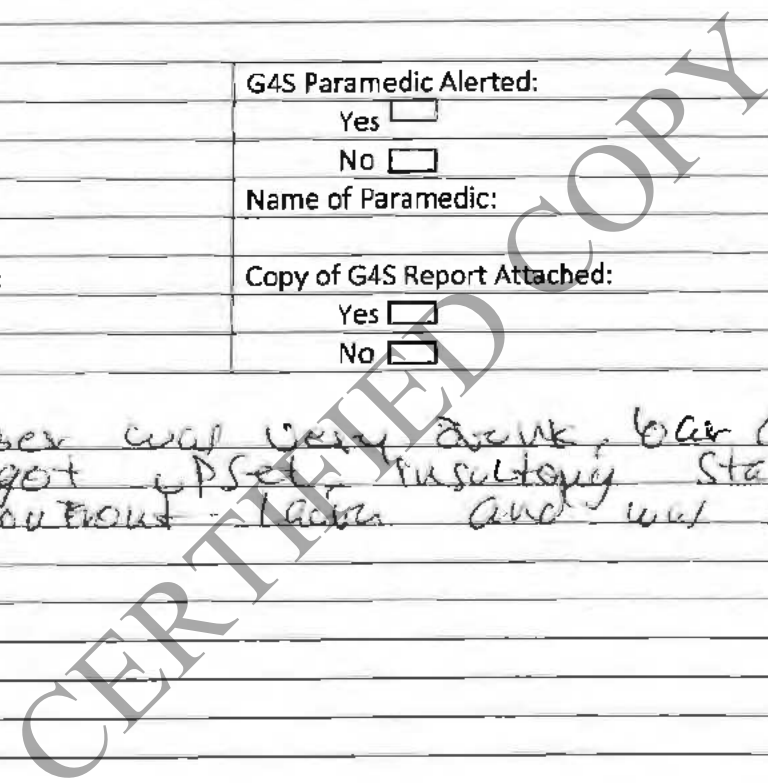 G4S Paramedic Alerted:
Yes
No
Name of Paramedic:
Copy of G4S Report Attached:
Yes
No
was very drunk, bar
got upset insulting Sta
and was
CERTIFIED COPY